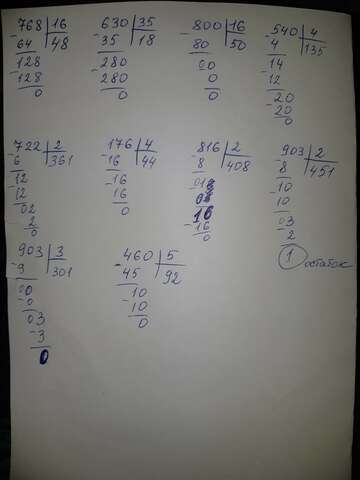 768 | 16
- 64 | 48
128
- 128
0
630 | 35
- 35 | 18
280
- 280
0
800 | 16
- 80 | 50
00
0
0
0
540 | 4
- 4 | 135
14
- 12
20
- 20
0
722 | 2
- 6 | 361
12
- 12
02
2
0
176 | 4
- 16 | 44
16
- 16
0
816 | 2
- 8 | 408
01
0
16
- 16
0
903 | 2
- 8 | 451
10
10
03
- 2
1 остаток
903 | 3
- 9 | 301
00
- 0
03
- 3
0
460 | 5
- 45 | 92
10
- 10
0